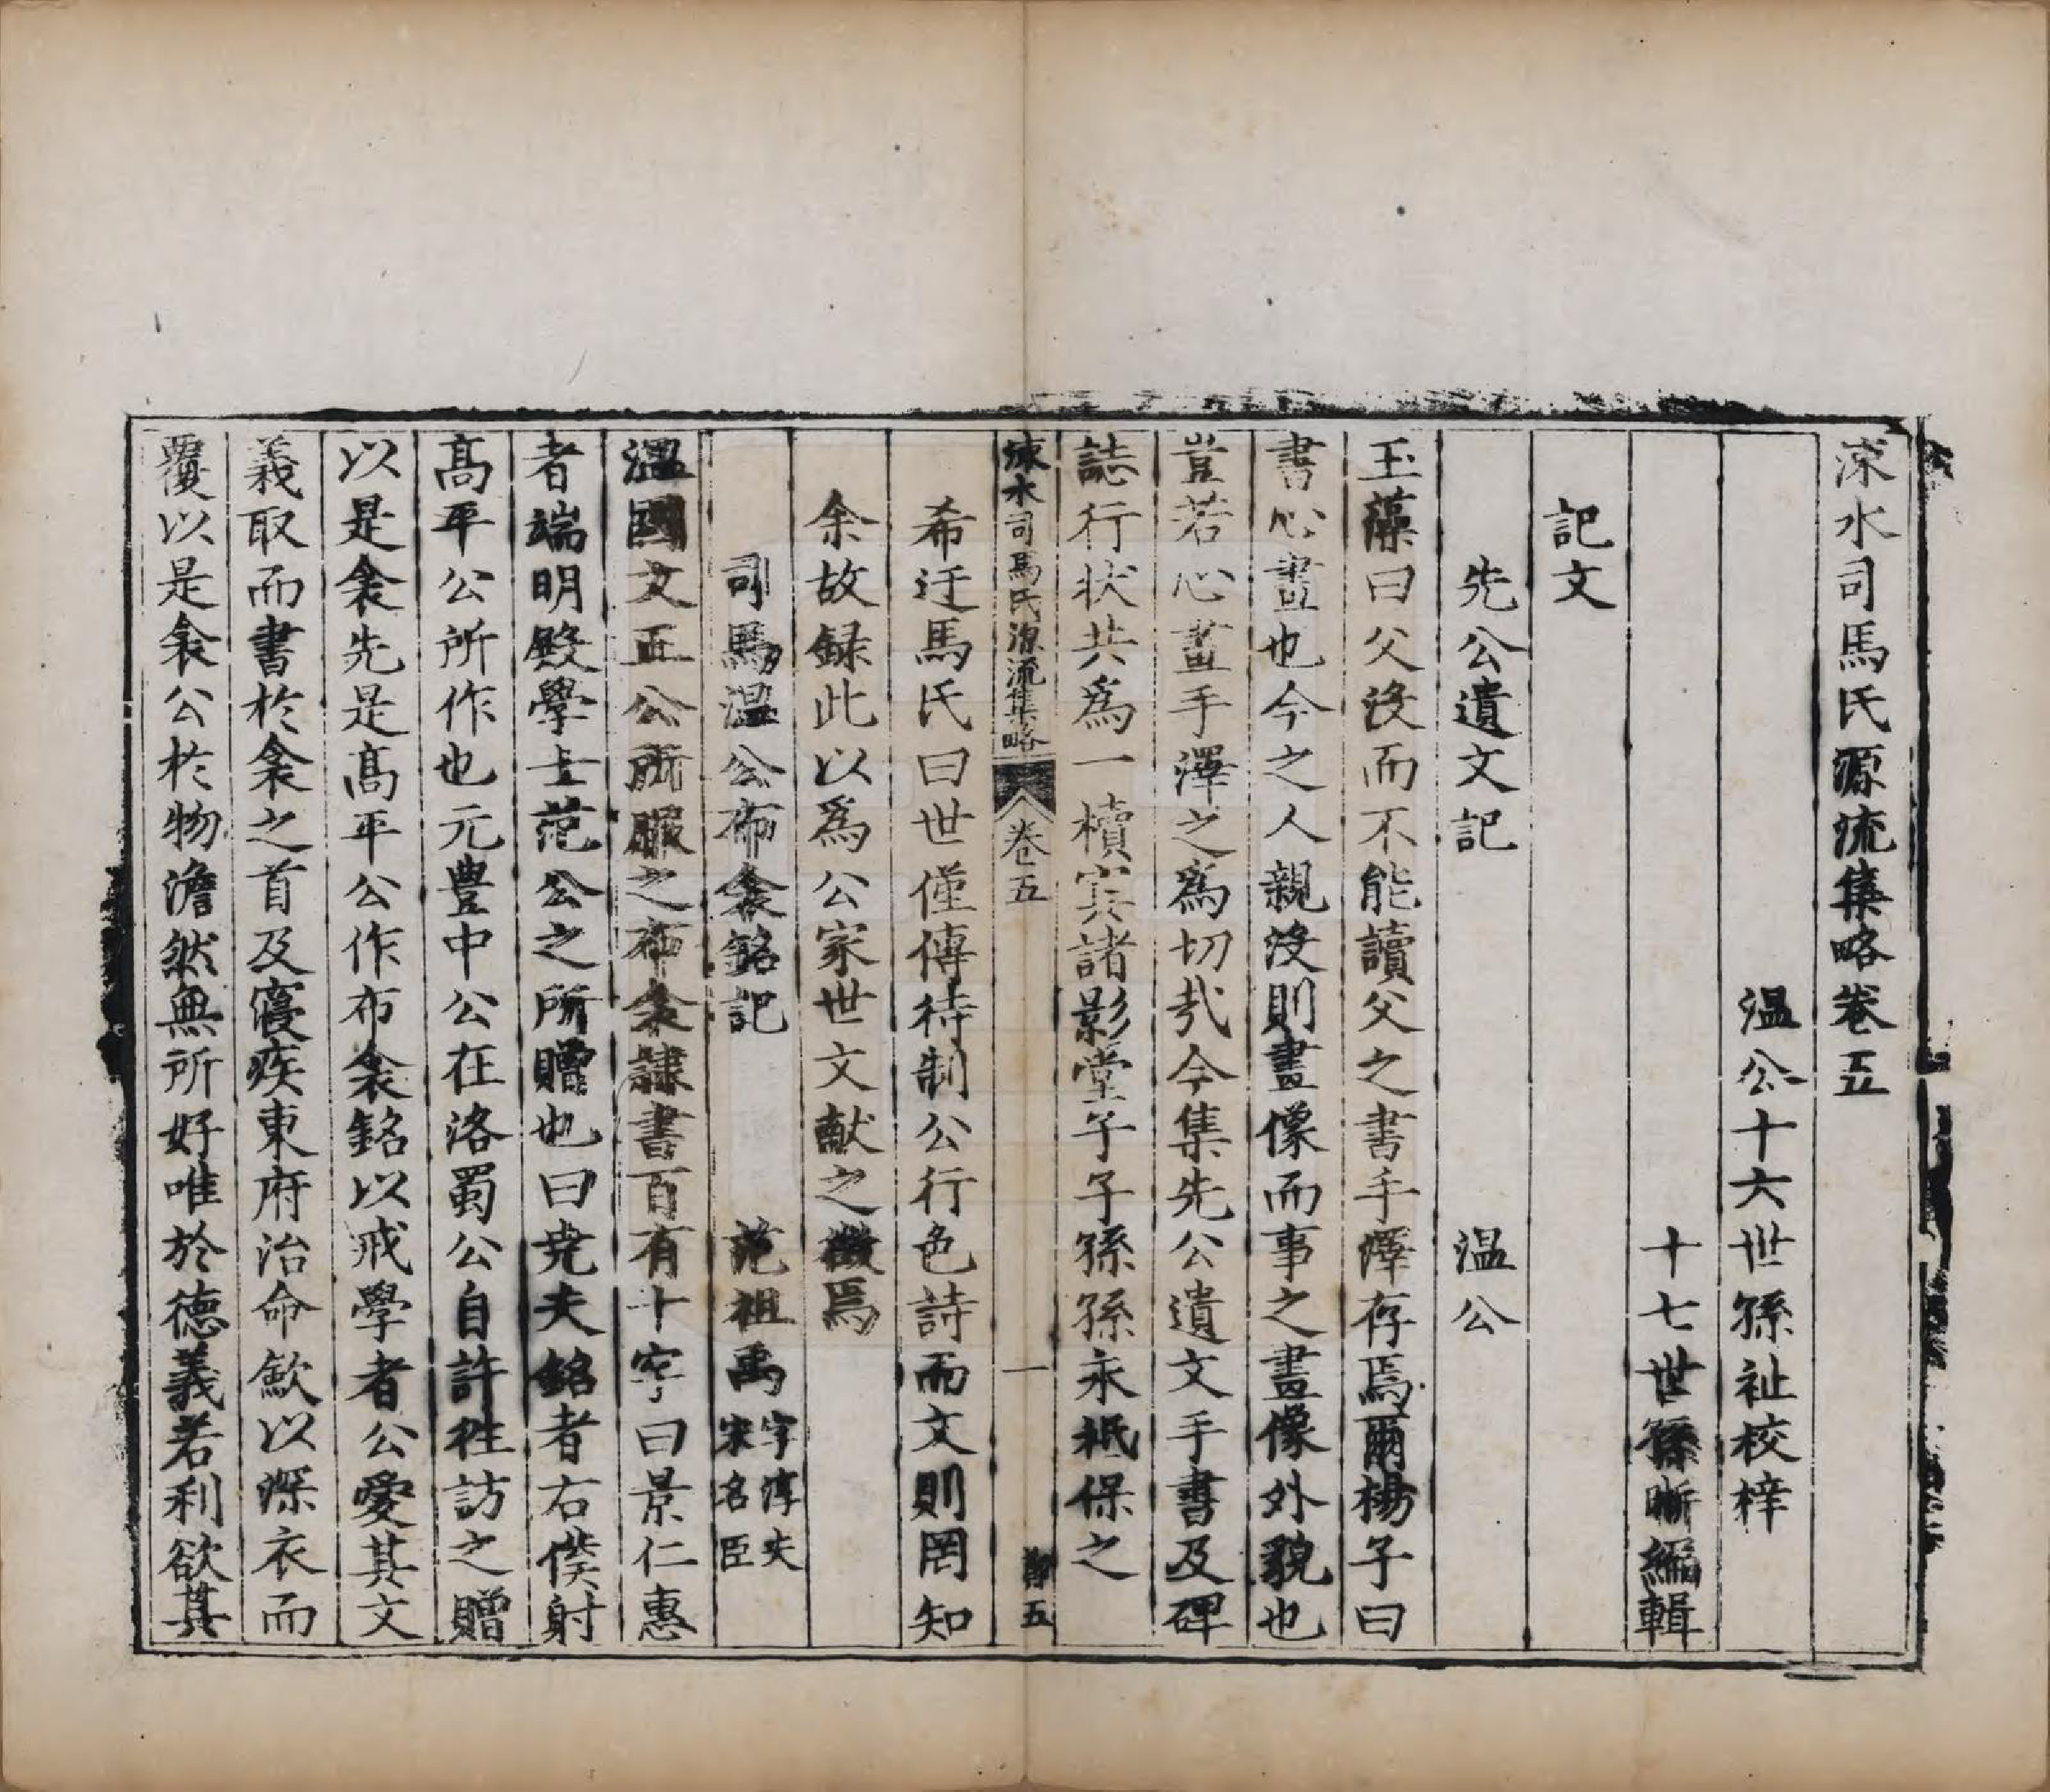 涑水司馬氏源流集略卷五
温公十六世孫祉校梓
十七世孫晣編輯
記文
先公遺文記　温公
玉藻曰父没而不能讀父之書手澤存焉爾楊子曰
書心畫也今之人親没則畫像而事之畫像外貌也
豈若心畫手澤之爲切㢤今集先公遺文手書及碑
誌行状共爲一櫝寘諸影堂子子孫孫永祗保之
涑水司馬氏源流集略　卷五　一　五
希迂馬氏曰世僅傳待制公行色詩而文則罔知
余故録此以爲公家世文献之徵焉
司馬温公布衾銘記　范祖禹字淳夫宋名臣
温國文正公所服之布衾隷書百有十字曰景仁惠
者端明殿學士范公之所贈也曰堯夫銘者右僕射
髙平公所作也元豊中公在洛蜀公自許徃訪之贈
以是衾先是髙平公作布衾銘以戒學者公愛其文
義取而書於衾之首及寢疾東府治命歛以深衣而
覆以是衾公於物澹然無所好唯於德義若利欲其